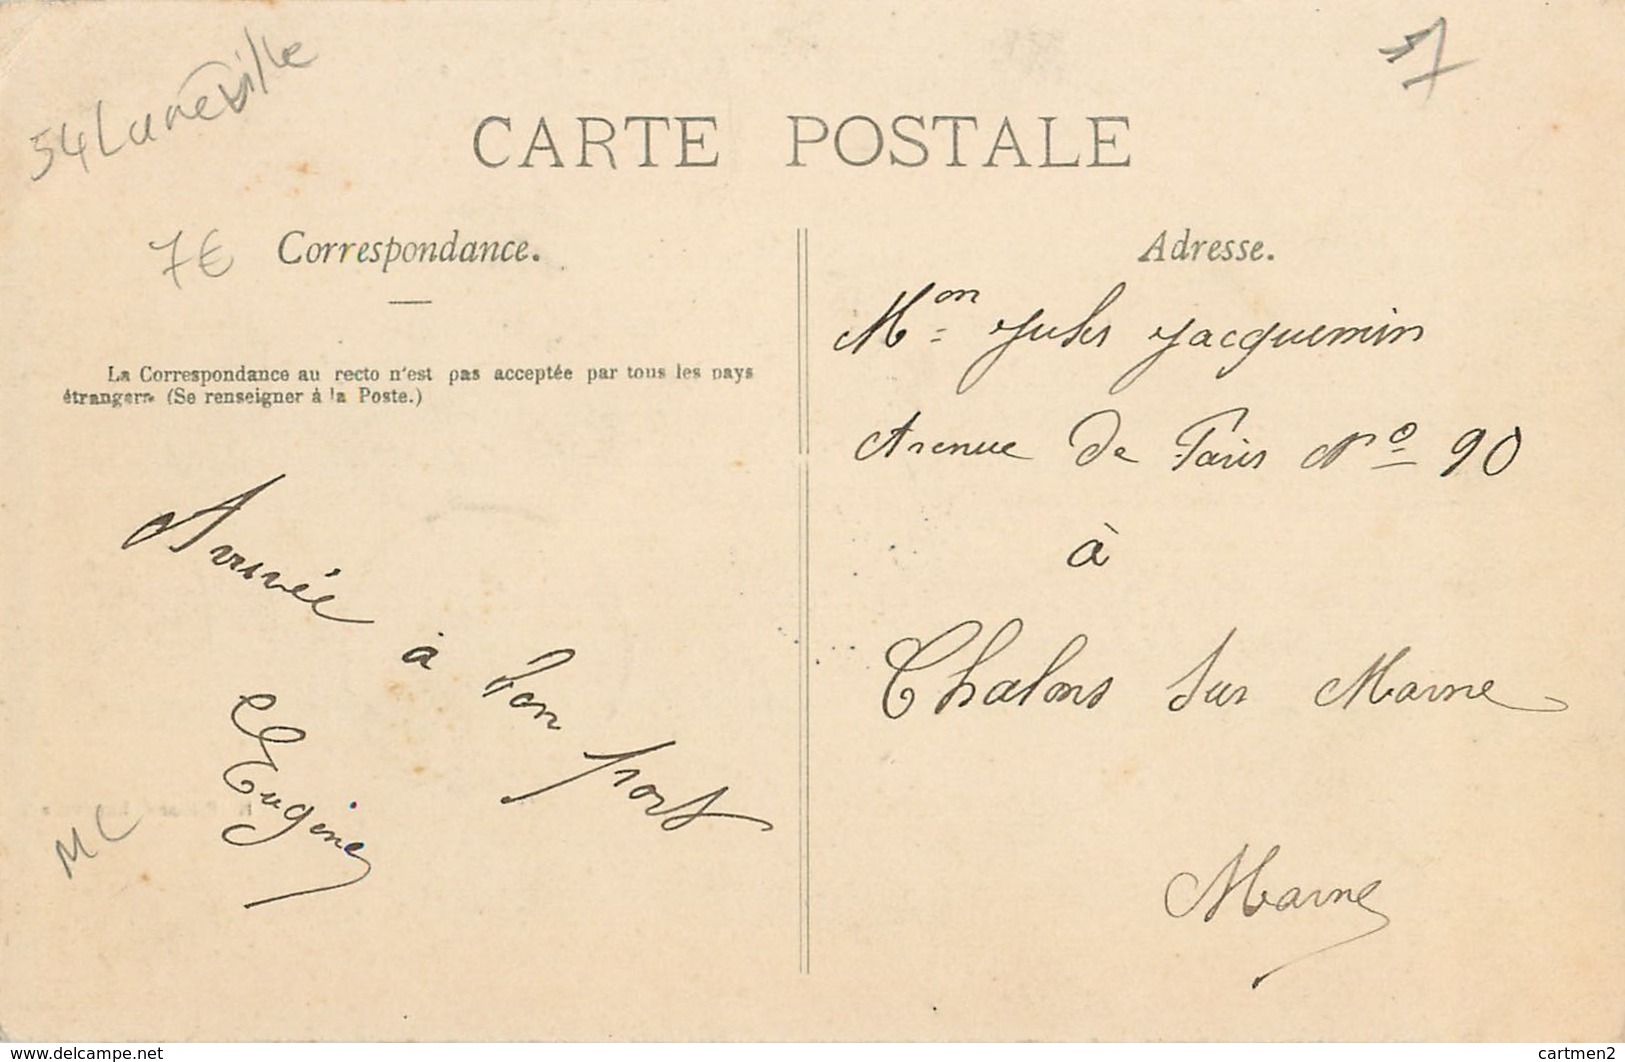 54 Lunéville
17
CARTE POSTALE
7€
Correspondance.
La Correspondance au recto n'est pas acceptée par tous les pays
étrangers (Se renseigner à la Poste.)
Arrivée
à bon port
Eugène
MC
Adresse.
Mon Jules Jacquemin
Avenue de Paris No 90
à
Chalons sur Marne
Marne
www.delcampe.net
cartmen2